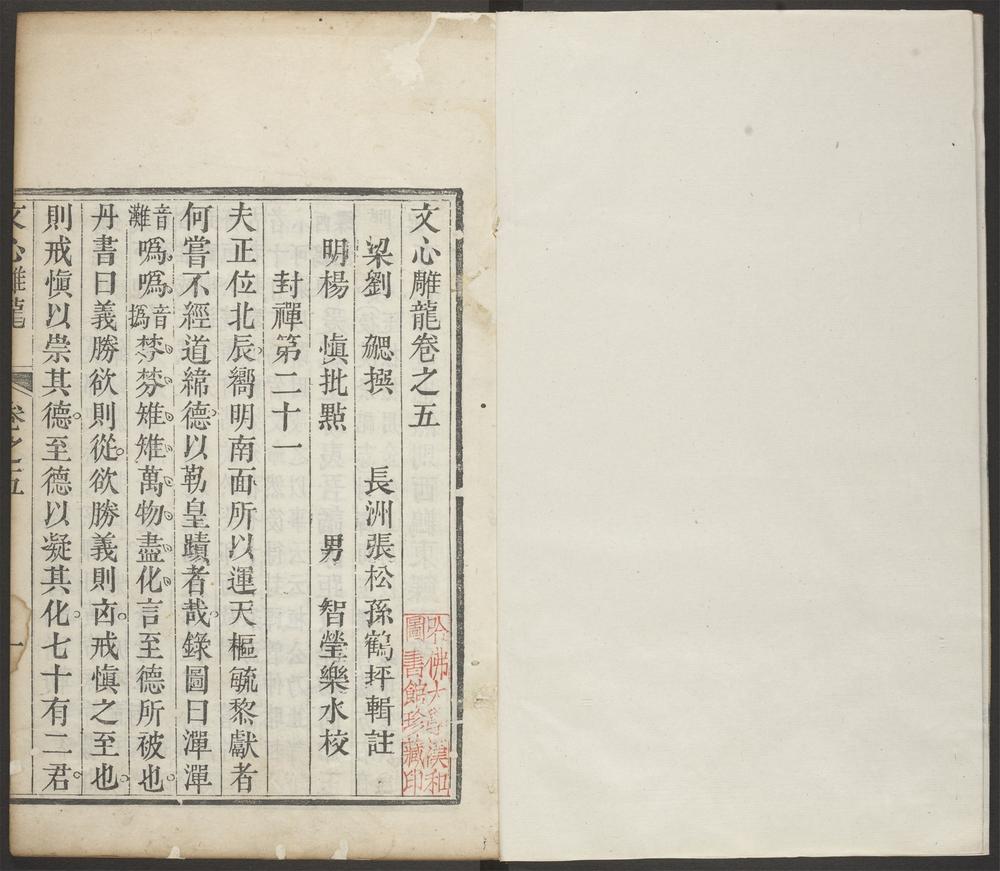 文心雕龍卷之五
梁劉　勰撰　　長洲張松孫鶴坪輯註
明楊　慎批點　　男　智瑩樂水校
封禪第二十一
夫正位北辰嚮明南面所以運天樞毓黎獻者
何嘗不經道緯德以勒皇蹟者哉錄圖曰潬潬
音灘噅噅音撝棼棼雉雉萬物盡化言至德所被也
丹書曰義勝欲則從欲勝義則㐫戒慎之至也
則戒慎以崇其德至德以凝其化七十有二君
文心雕龍　卷之五　一
哈佛大學漢和
圖書館珍藏印